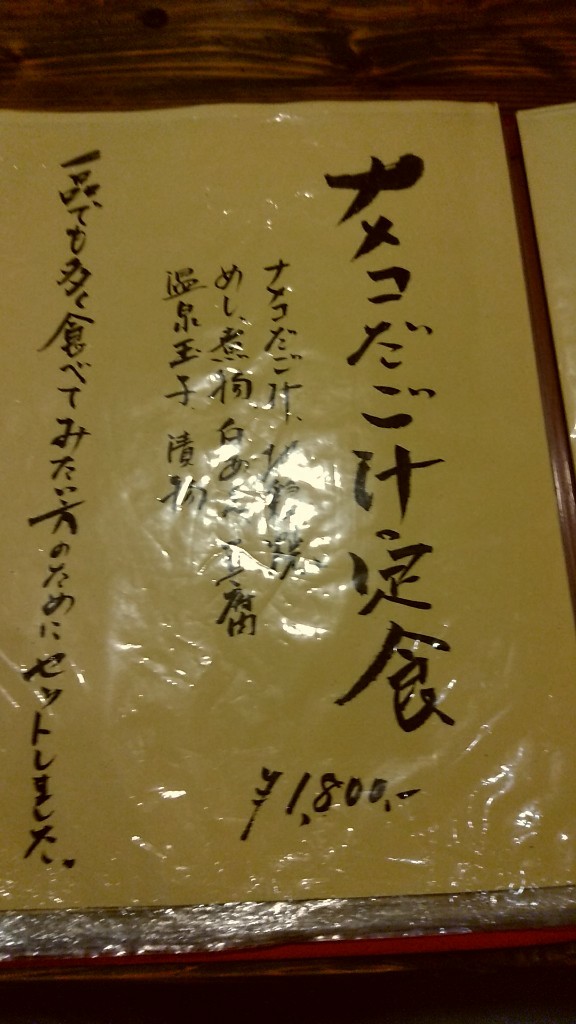 ナメコだご汁定食
ナメコだご汁、
めし、煮物、
温泉玉子、漬物
¥1,800.-
一品でも多く食べてみたい方のためにセットしました。